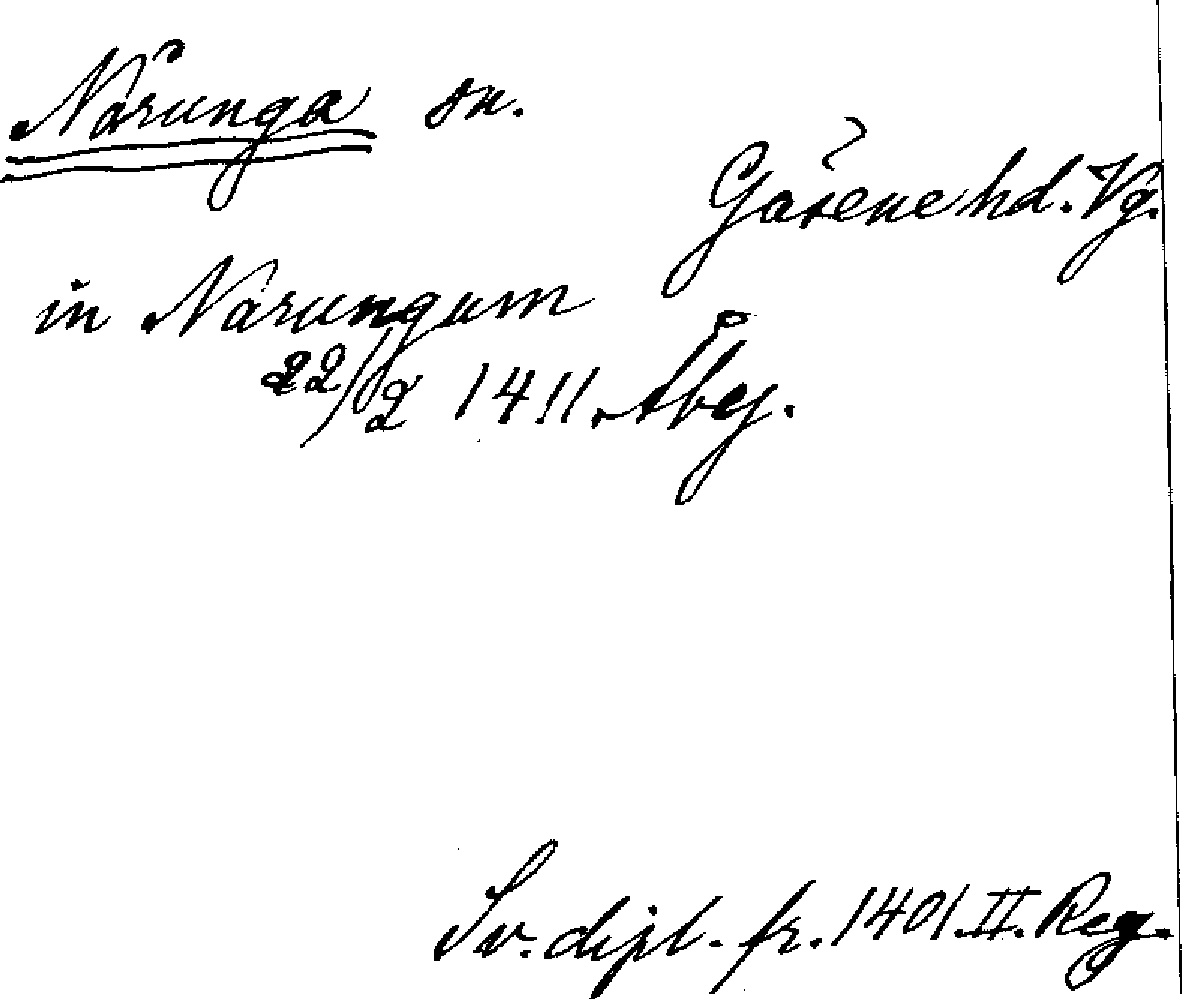 Närunga sn.
Gäsene hd. Vg.
in Narungum
22/2 1411. Åbej.
Sv. dipl. fr. 1401. II. Reg.